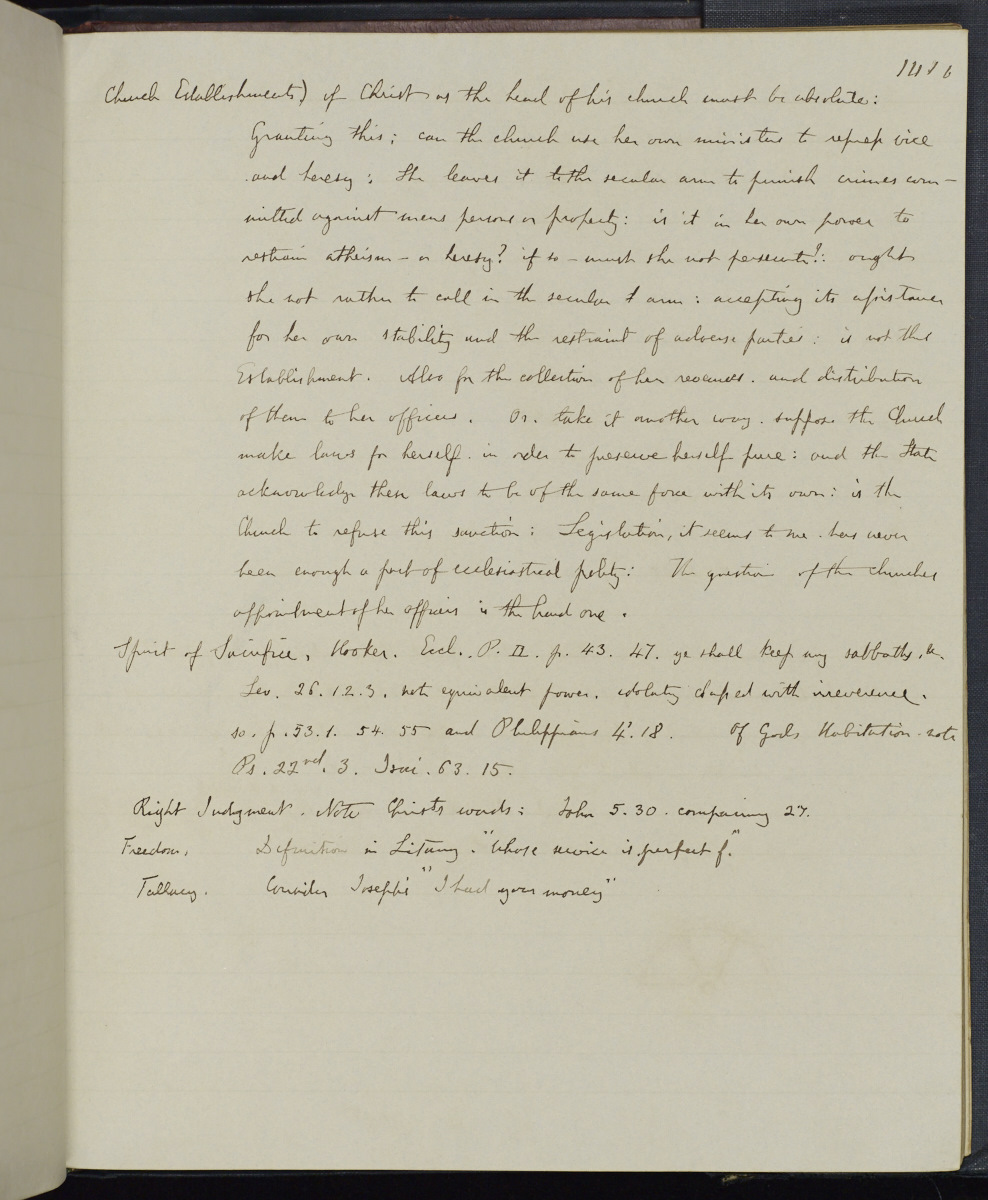 Church Establishments) of Christ as the head of his church must be absolute:
Granting this; can the church use her own ministers to repress vice
and heresy: She leaves it to the secular arm to punish crimes com-
mitted against mens persons or property: is it in her own power to
restrain atheism - or heresy? if so - must she not persecute?: ought
she not rather to call in the secular arm: accepting its assistance
for her own stability and the restraint of adverse parties: is not this
Establishment. Also for the collection of her revenues. and distribution
of them to her officers. Or. take it another way. suppose the Church
make laws for herself. in order to preserve herself pure: and the State
acknowledge these laws to be of the same force with its own: is the
Church to refuse this sanction: Legislation, it seems to me. has never
been enough a part of ecclesiastical polity: The question of the churches
appointment of her officers is the hard one.
Spirit of Sacrifice, Hooker. Eccl. P. II. p. 43. 47. ye shall keep my sabbaths, &c.
Lev. 26. 1.2.3. note equivalent power. idolatry classed with irreverence.
so. p. 53.1. 54. 55 and Philippians 4. 18. Of Gods Habitation. note
Ps. 22nd. 3. Isai. 63. 15.
Right Judgment. Note Christs words: John 5. 30. comparing 27.
Freedom. Definition in Liturgy. "Whose service is perfect f."
Fallacy. Consider Joseph's "I had your money"